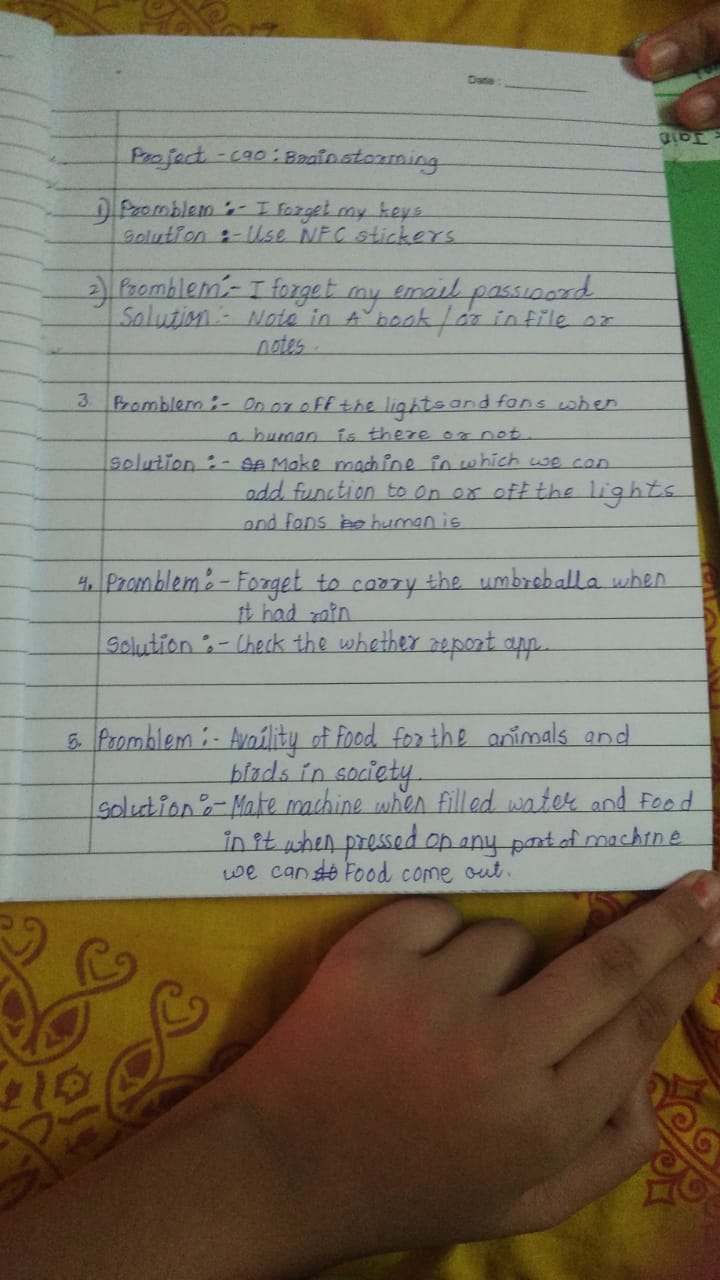 Date :
Project - C90 : Brainstorming
1) Promblem :- I Forget my keys
Solution :- Use NFC stickers
2) Promblem :- I forget my email password
Solution :- Note in A book / or in file or
notes .
3. Promblem :- On or off the lights and fans when
a human is there or not .
Solution :- Make machine in which we can
add function to on or off the lights
and fans human is
4. Promblem :- Forget to carry the umbreballa when
it had rain
Solution :- Check the whether report app.
5. Promblem :- Availity of Food for the animals and
birds in society.
Solution :- Make machine when filled water and Food
in it when pressed on any part of machine
we can Food come out .